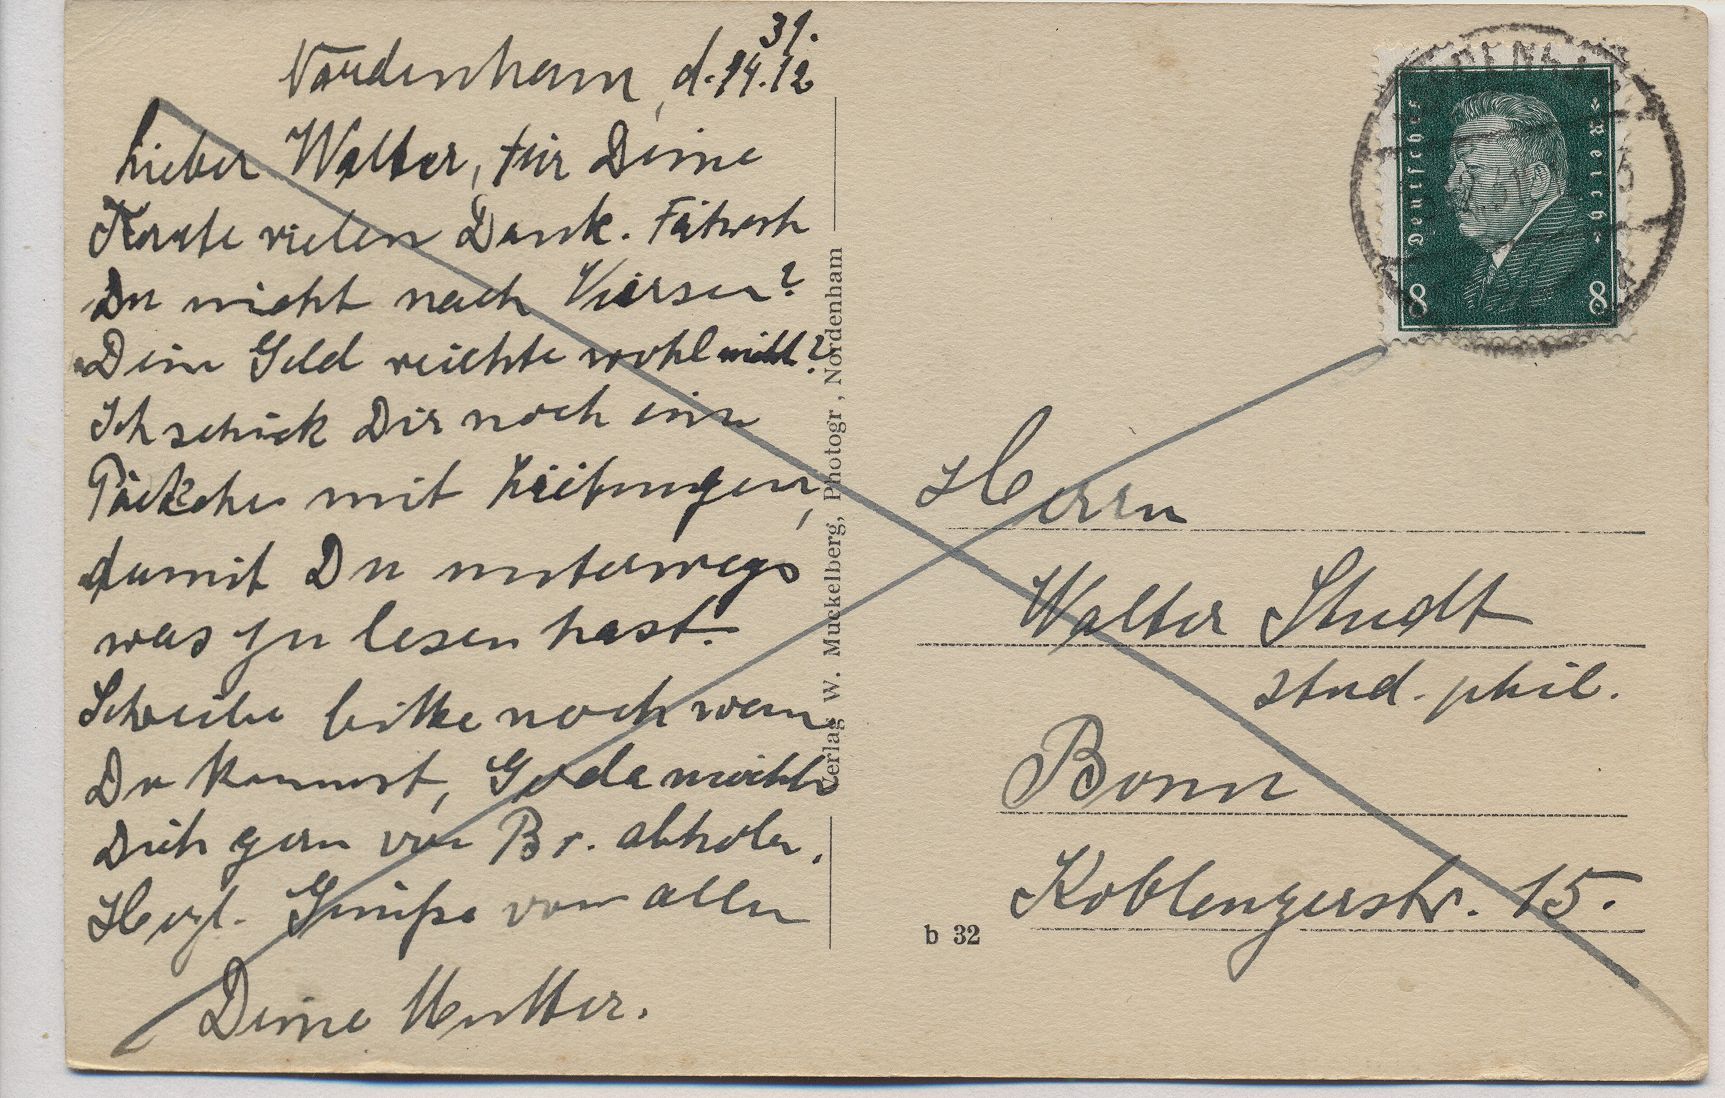 Nordenham, d. 14.12
31.
Lieber Walter, für Deine
Karte vielen Dank. Fährst
Du nicht nach Viersen?
Dein Geld reichte wohl nicht?
Ich schick Dir noch ein
Päckchen mit Zeitungen,
damit Du unterwegs
was zu lesen hast.
Schreibe bitte noch wann
Du kommst, Gerda möchte
Dich gern von Br. abholen.
Herzl. Grüße von allen
Deine Mutter.
Verlag W. Muckelberg, Photogr, Nordenham
Deutsches Reich
8 8
Herrn
Walter Studt
stud. phil.
Bonn
Koblenzerstr. 15.
b 32